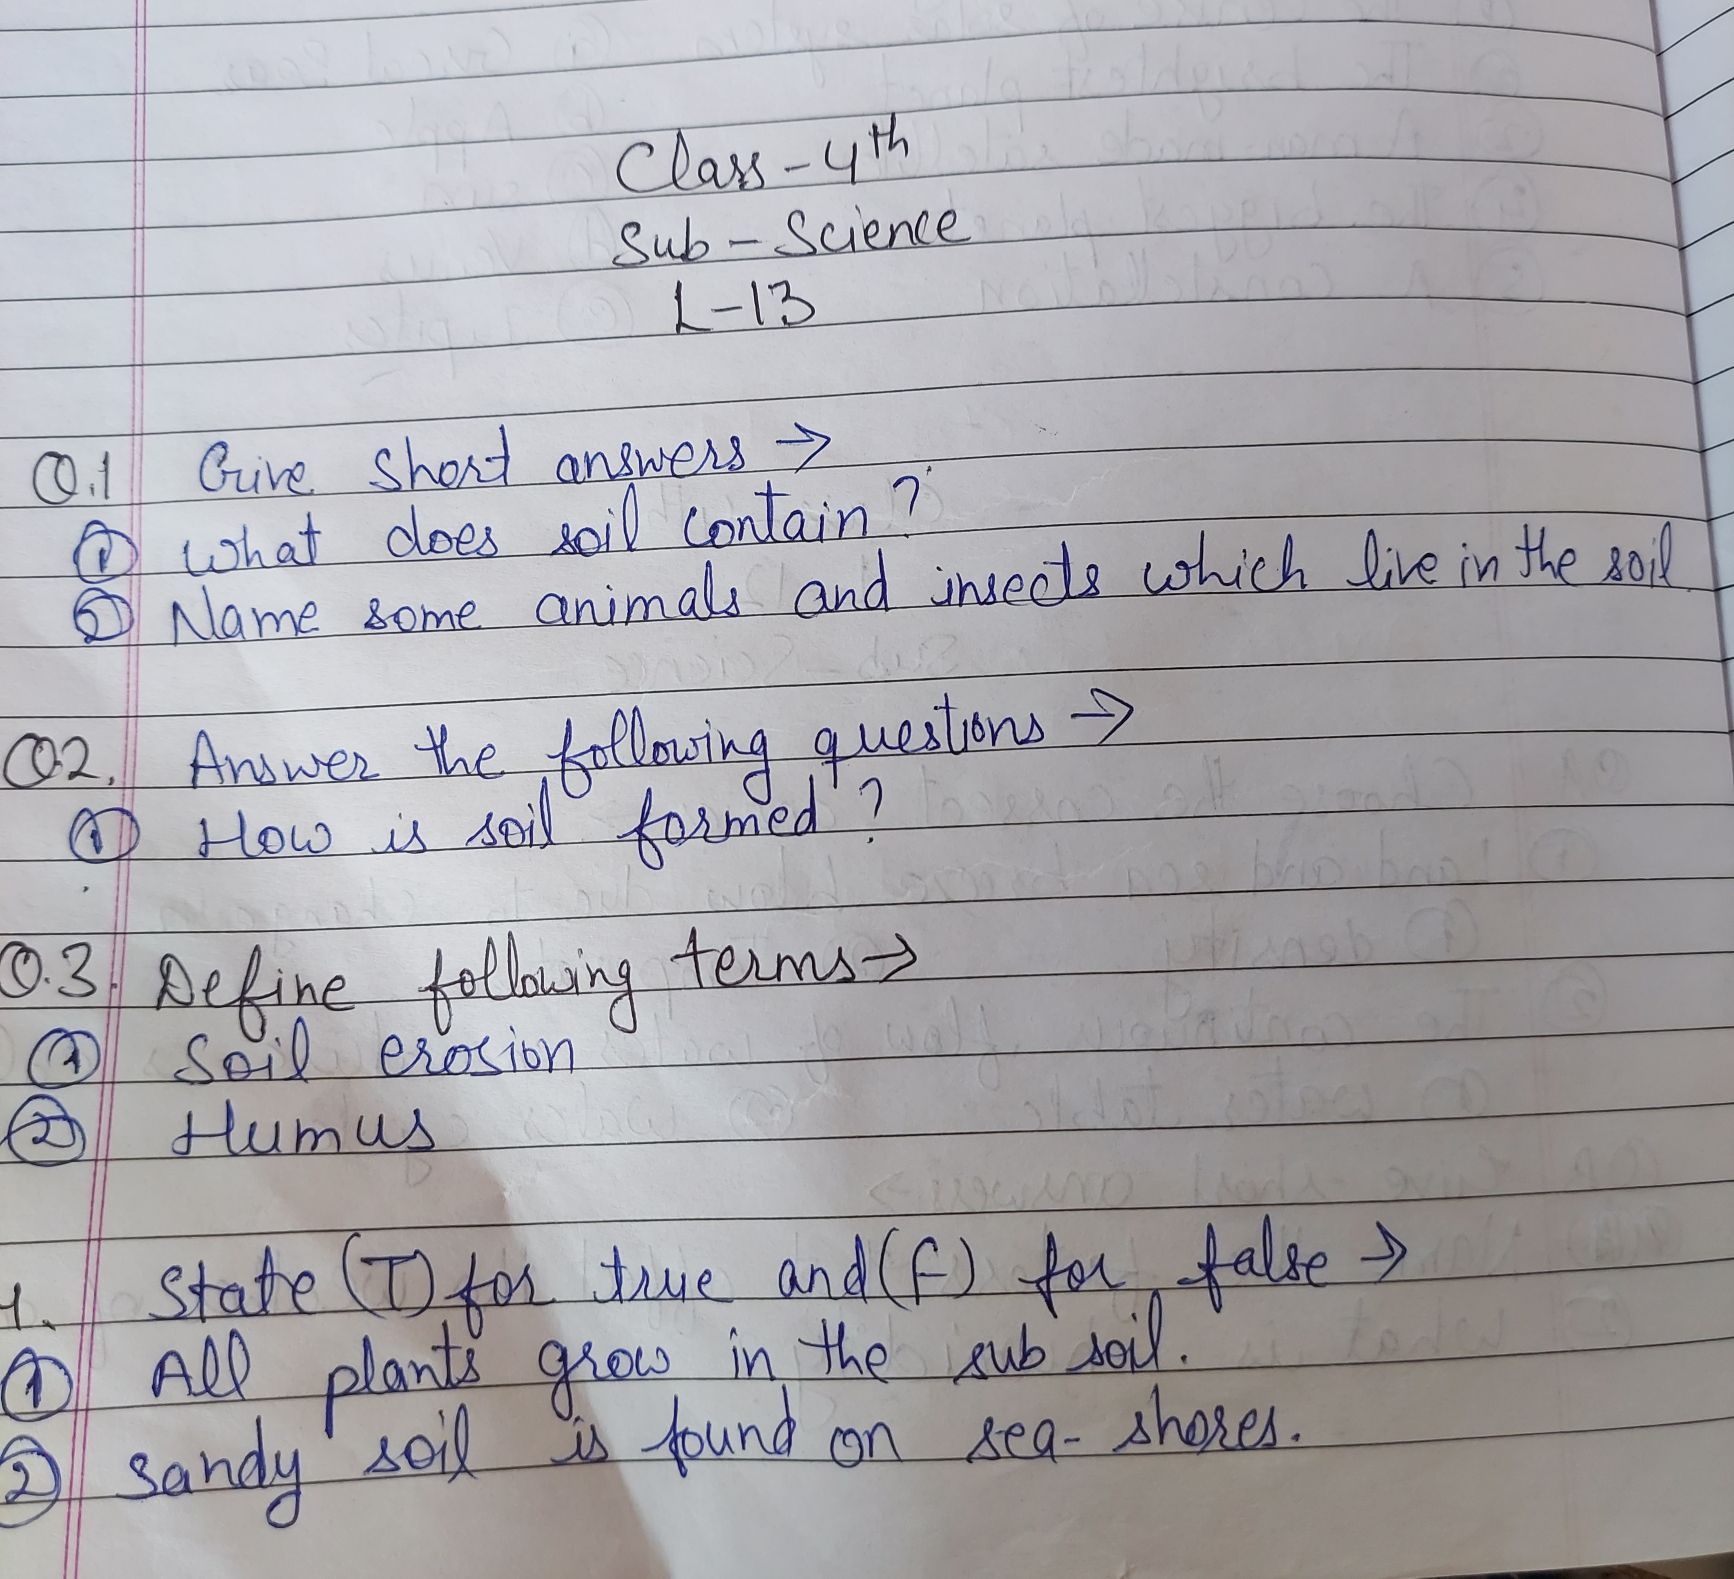 Class - 4th
Sub - Science
L-13
Q.1 Give short answers →
① What does soil contain?
② Name some animals and insects which live in the soil
Q2. Answer the following questions →
① How is soil formed?
Q.3. Define following terms →
① Soil erosion
② Humus
4. State (T) for true and (F) for false →
① All plants grow in the sub soil.
② Sandy soil is found on sea-shores.